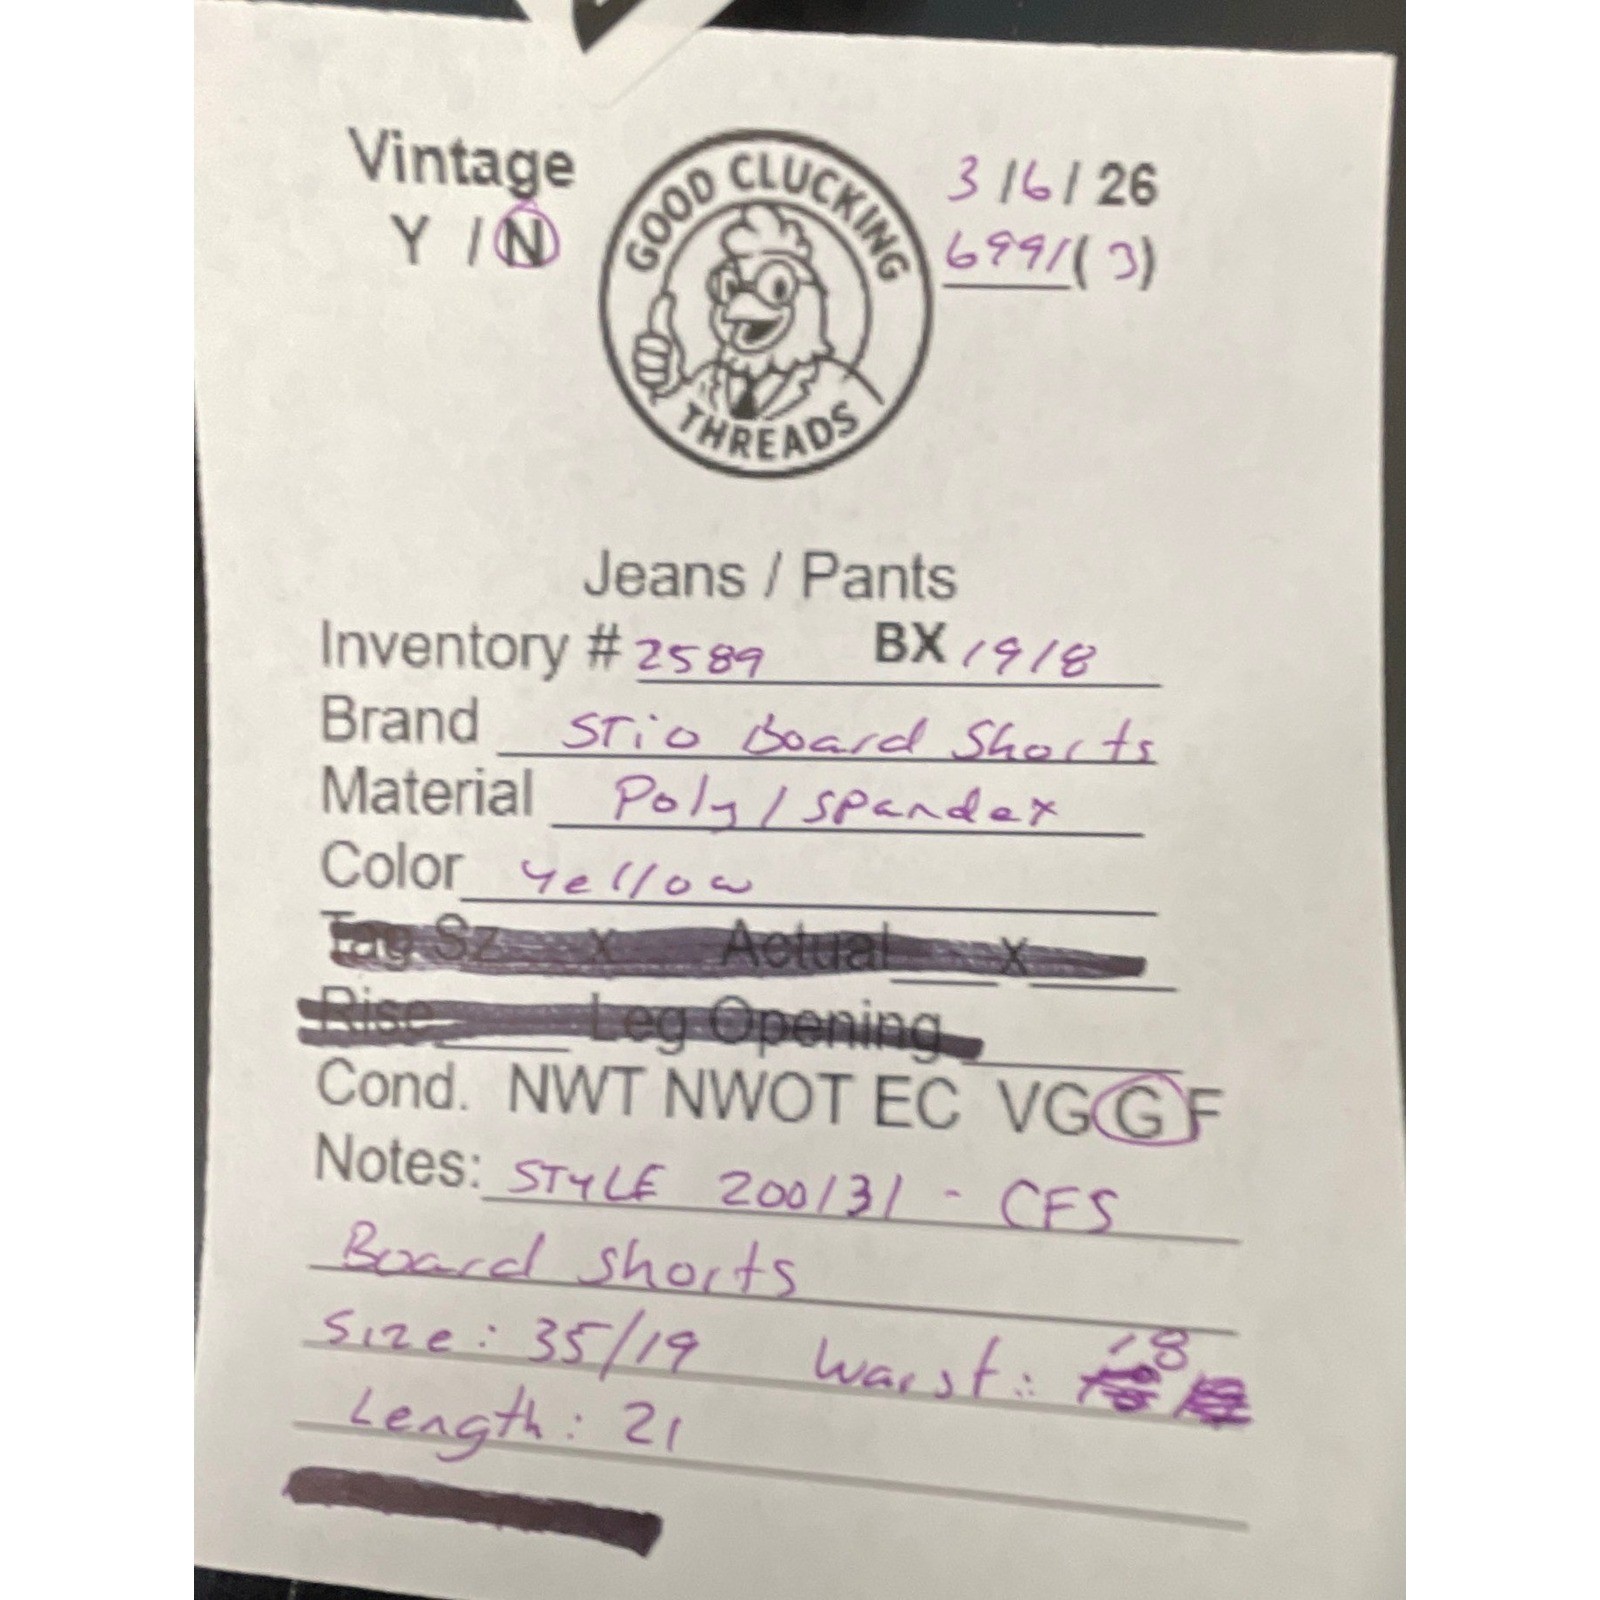 Vintage
Y / N
GOOD CLUCKING
THREADS
3 / 6 / 26
6991 ( 3 )
Jeans / Pants
Inventory # 2589 BX 1918
Brand STiO Board Shorts
Material Poly / Spandex
Color Yellow
Tag Sz x Actual x
Rise Leg Opening
Cond. NWT NWOT EC VG G F
Notes: STYLE 200131 - CFS
Board shorts
Size: 35/19 Waist: 18
Length: 21